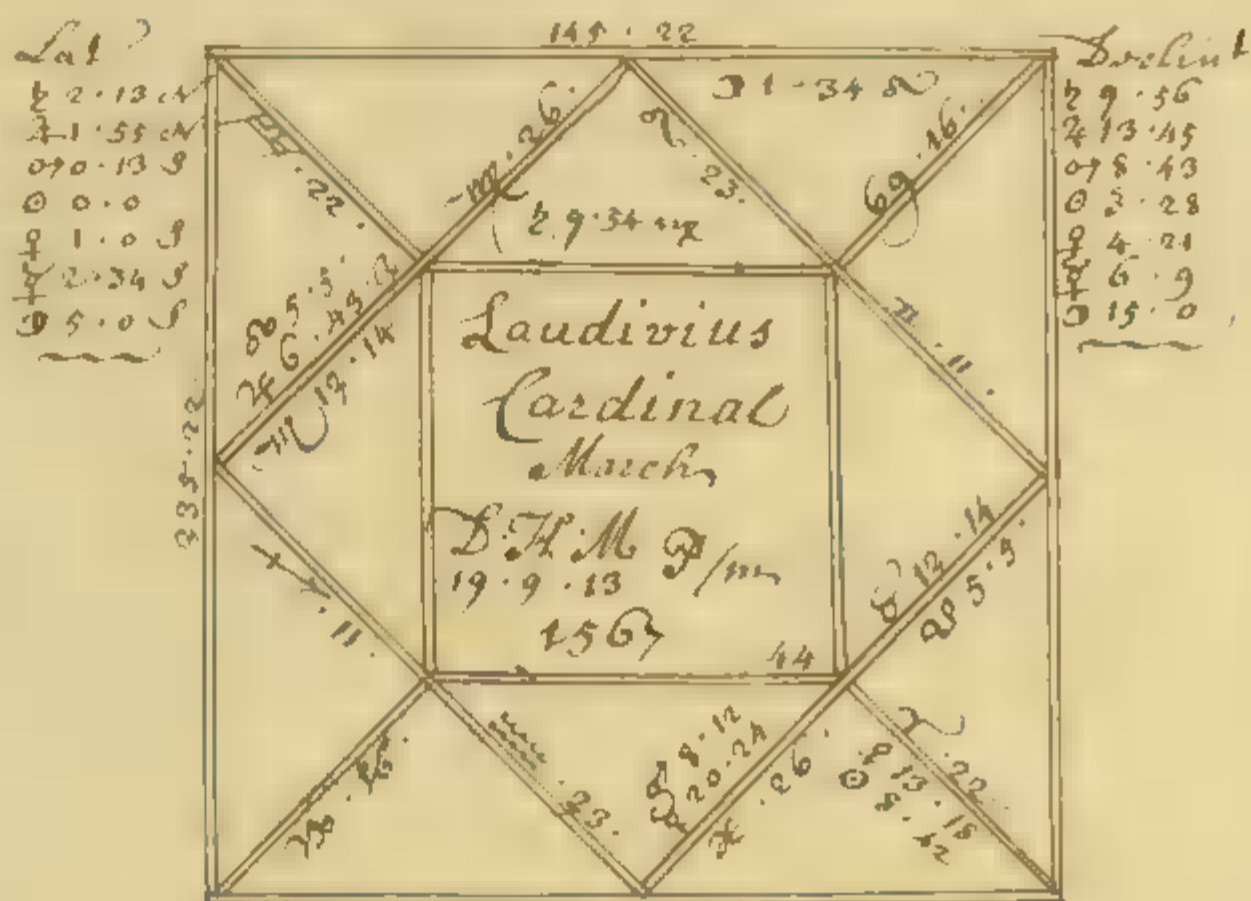 145 · 22
Lat
♄ 2 · 13 N
♃ 1 · 55 N
♂ 0 · 13 S
☉ 0 · 0
♀ 1 · 0 S
☿ 2 · 34 S
☽ 5 · 0 S
Declin
♄ 9 · 56
♃ 13 · 45
♂ 8 · 43
☉ 3 · 28
♀ 4 · 21
☿ 6 · 9
☽ 15 · 0
☽ 1 · 34 ♌
♎ · 22
♍ · 26
♌ · 23
♋ · 16
♄ 9 · 34 ♍
♊ · 11
☊ 5 · 5
♃ 6 · 43
♏ 12 · 14
335 · 22
Laudivius
Cardinal
March
D · H · M P/m
19 · 9 · 13
1567
44
♐ · 11
♑
♒ · 23
♂ 8 · 12
☿ 20 · 24
♓ · 26
♈ · 22
♀ 13 · 18
☉ 8 · 42
♉ 12 · 14
☋ 5 · 5